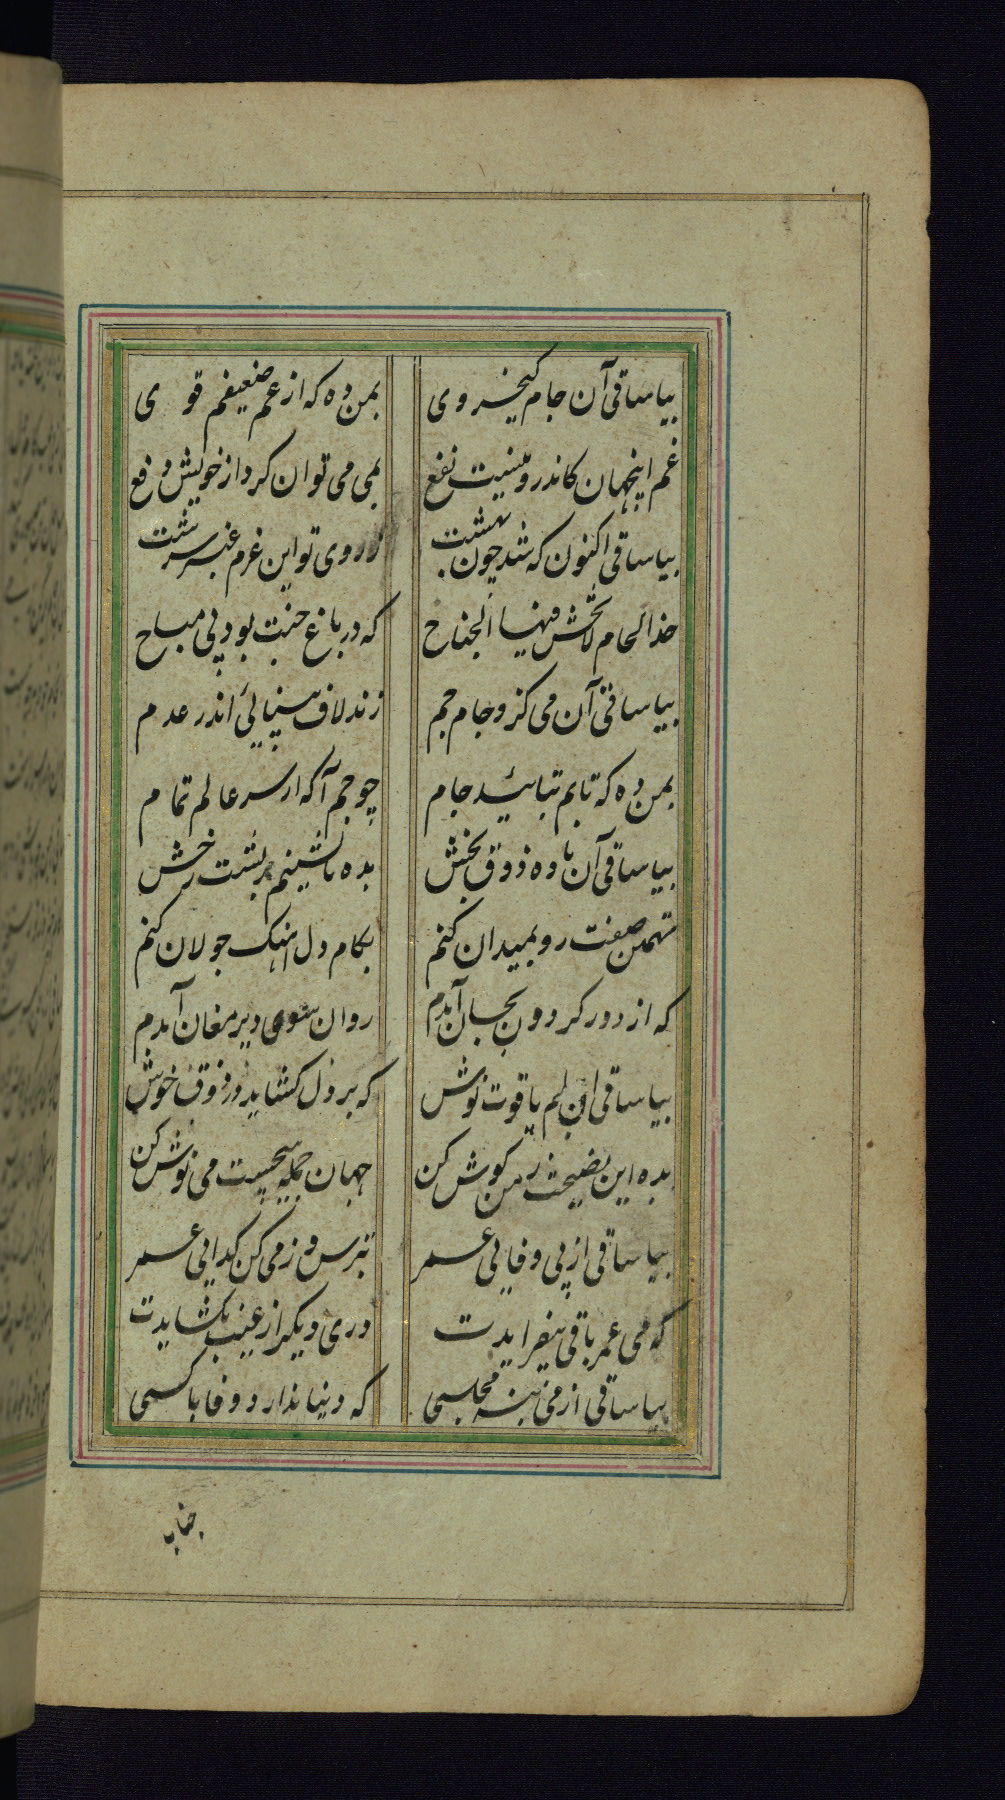 بیا ساقی آن جام کیخسروی بمن ده که از غم ضعیفم قوی
غم اینجهان کاندرو نیست نفع بمی می توان کرد از خویش دفع
بیا ساقی اکنون که شد چون بهشت ز روی تو این بزم عنبر سرشت
خذ الجام لا تخش فیها الجناح که در باغ جنت بود می مباح
بیا ساقی آن می کزو جام جم زند لاف بینائی اندر عدم
بمن ده که تا بم بتائید جام چو جم آکه از سر عالم تمام
بیا ساقی آن باده ذوق بخش بده تا نشینم بر پشت رخش
تهمتن صفت رو بمیدان کنم بکام دل آهنک جولان کنم
که از دور کردون بجان آمدم روان سوی دیر مغان آمدم
بیا ساقی یاقوت نوش که بر دل کشاید در ذوق خوش
بده این نصیحت ز من کوش کن جهان جمله هیچست می نوش کن
بیا ساقی از بی وفایی عمر بترس و ز می کن کدایی عمر
که می عمر باقی بیفزایدت دری دیکر از غیب بکشایدت
بیا ساقی از می بنه مجلسی که دنیا ندارد وفا با کسی